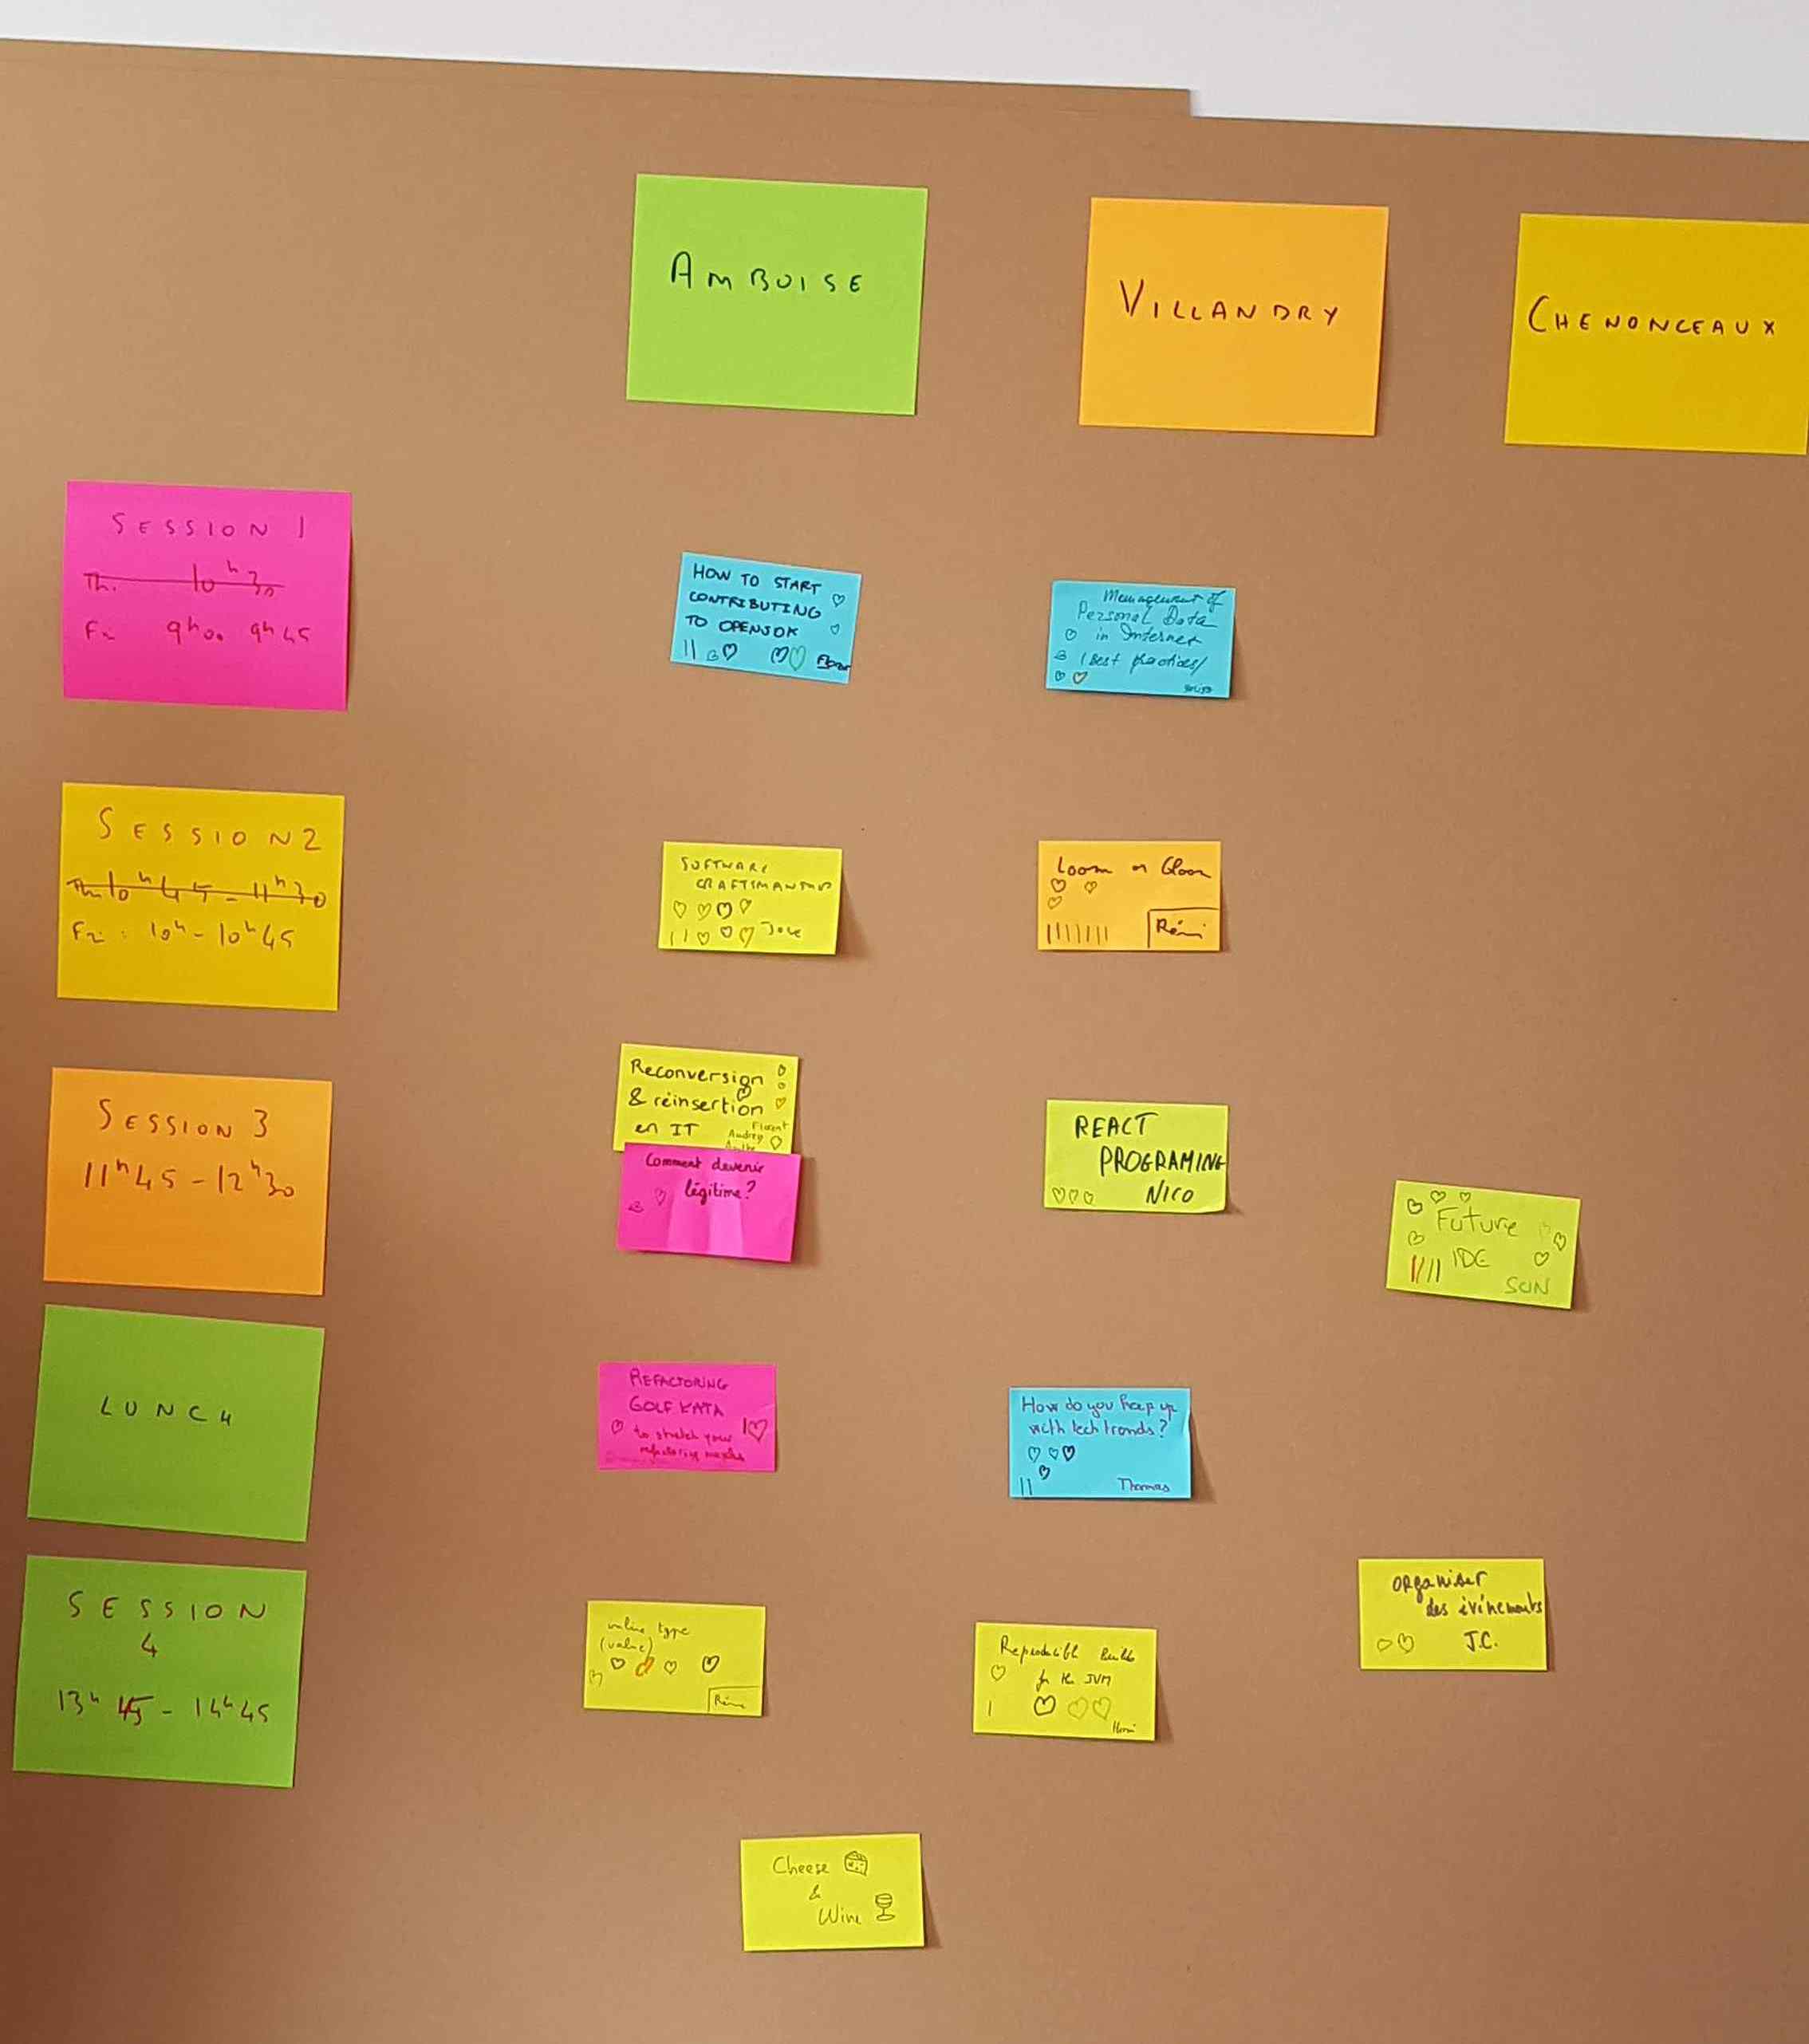 AMBOISE
VILLANDRY
CHENONCEAUX
SESSION 1
Th. 10h30
Fr 9h00 9h45
HOW TO START
CONTRIBUTING
TO OPENJDK
Management of
Personal Data
in Internet
(Best practices)
SESSION 2
Th 10h45 - 11h30
Fr : 10h - 10h45
SOFTWARE
CRAFTSMANSHIP
Jose
Loom or Gloom
Rémi
SESSION 3
11h45 - 12h30
Reconversion
& réinsertion
en IT
Florent
Audrey
Comment devenir
légitime?
REACT
PROGRAMING
NICO
Future
IDE
SUN
LUNCH
REFACTORING
GOLF KATA
to stretch your
refactoring muscles
How do you keep up
with tech trends?
Thomas
SESSION
4
13h45 - 14h45
inline type
(value)
Rémi
Reproducible builds
for the JVM
Hervé
organiser
des événements
J.C.
Cheese
&
Wine